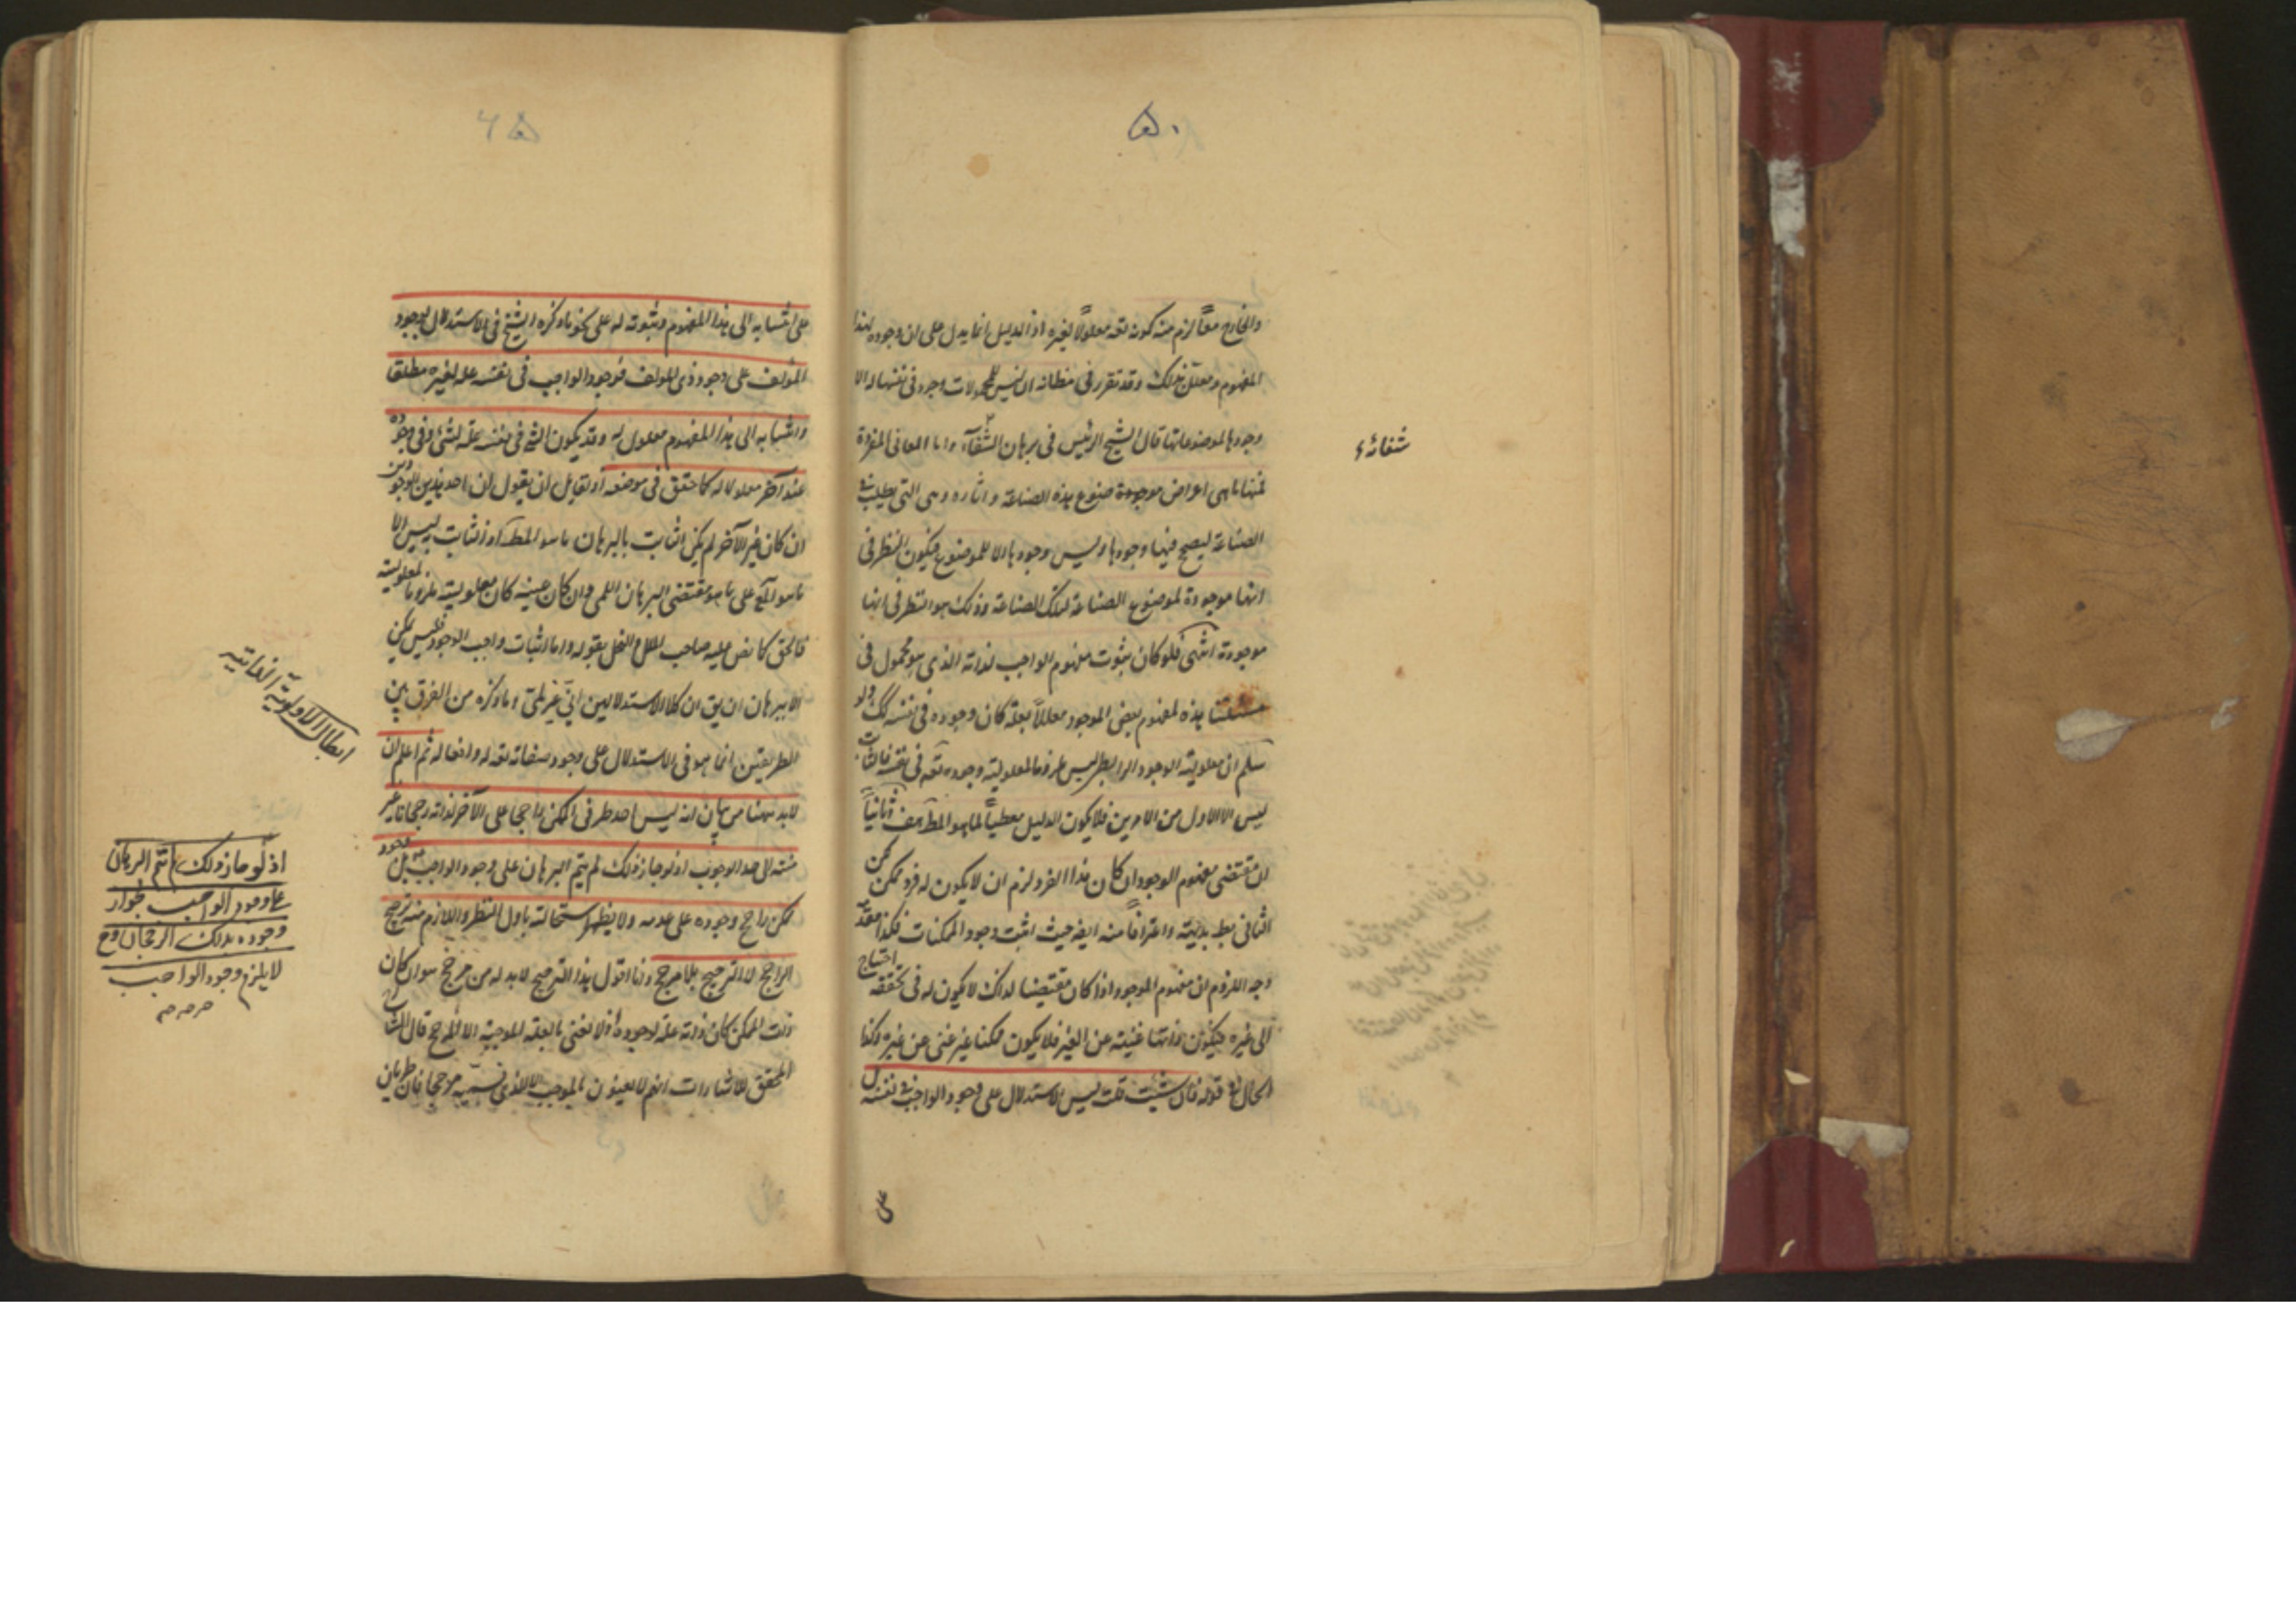 ۵۰
والخارج معًا لزم منه كونه تعه معلولًا لغيره اذ الدليل انما يدل على ان وجوده لهذا
المفهوم ومعلل بذلك وقد تقرر فى مظانه ان ليس للمحمولات وجود فى نفسها الا
وجودها لموضوعاتها قال الشيخ الرئيس فى برهان الشفآء واما المعانى المفردة
شفائء
فمنها ما هى اعراض موجودة موضوع هذه الصناعة واثاره وهى التى يطلب فى
الصناعة ليصح فيها وجودها وليس وجودها الا للموضوع فيكون النظر فى
انها موجودة لموضوع الصناعة لتلك الصناعة وذلك هو النظر فى انها
موجودة انتهى فلو كان ثبوت مفهوم الواجب لذاته الذى هو محمول فى
هذه لمفهوم بعض الموجود معللًا بعلة كان وجوده فى نفسه كك ولو
سلم ان معلولية الوجود الرابطى ليس ملزوما لمعلولية وجوده تعه فى نفسه فالثابت
ليس الا الاول من الامرين فلا يكون الدليل معطيًا لما هو المط هف وثانيًا
ان مقتضى مفهوم الوجود ان كان هذا الفرد لزم ان لا يكون له فرد ممكن لكن
الثانى بط بديهة واعترافًا منه ايضه حيث اثبت وجود الممكنات فكذا المقدم
وجه اللزوم ان مفهوم الموجود اذا كان مقتضيا لذلك لا يكون له فى تحققه احتياج
الى غيره فيكون ذاتها غنية عن الغير فلا يكون ممكنا غير غنى عن غيره وكذا
الحال فى قوله فان شئت قلت ليس الاستدلال على وجود الواجب فى نفسه بل
على
على انتسابه الى هذا المفهوم وثبوته له على نحو ما ذكره الشيخ فى الاستدلال بوجود
المؤلف على وجود ذى المؤلف فوجود الواجب فى نفسه علة لغيره مطلقا
وانتسابه الى هذا المفهوم معلول له وقد يكون الشئ فى نفسه علة لشئ وفى وجوده
عند آخر معلولا له كما حقق فى موضعه اذ لقايل ان يقول ان احد هذين الوجودين
ان كان غير الآخر لم يكن اثبات بالبرهان ما هو المط اذ الثابت به ليس الا
ما هو على ما هو مقتضى البرهان اللمى وان كان عينه كان معلوليته ملزوما لمعلوليته
فالحق كما نص عليه صاحب الملل والنحل بقوله واما اثبات واجب الوجود فليس يمكن
الا ببرهان ان يق ان كلا الاستدلالين انى غير لمى وما ذكره من الفرق بين
الطريقين انما هو فى الاستدلال على وجود صفاته تعه له وافعاله ثم اعلم ان
لابد ههنا من بيان انه ليس احد طرفى الممكن راجحا على الآخر لذاته رجحانا غير
منته الى حد الوجوب اذ لو جاز ذلك لم يتم البرهان على وجود الواجب بل وجود
ممكن راجح وجوده على عدمه ولا يظهر استحالته باول النظر واللازم منه ترجيح
الراجح لا الترجيح بلا مرجح وانا اقول هذا الترجيح لابد له من مرجح سواء كان
ذلت الممكن كان ذاته علة لوجوده اذ لا نعنى بالعلة الموجبة الا المرجح قال الشارح
المحقق للاشارات انهم لا يعنون بالموجب الا الذى نسميه مرجحا فان طريان
ابطال الاولوية الذاتيه
اذ لو جاز ذلك لم يتم البرهان
على وجود الواجب لجواز
وجوده بذلك الرجحان وح
لا يلزم وجود الواجب